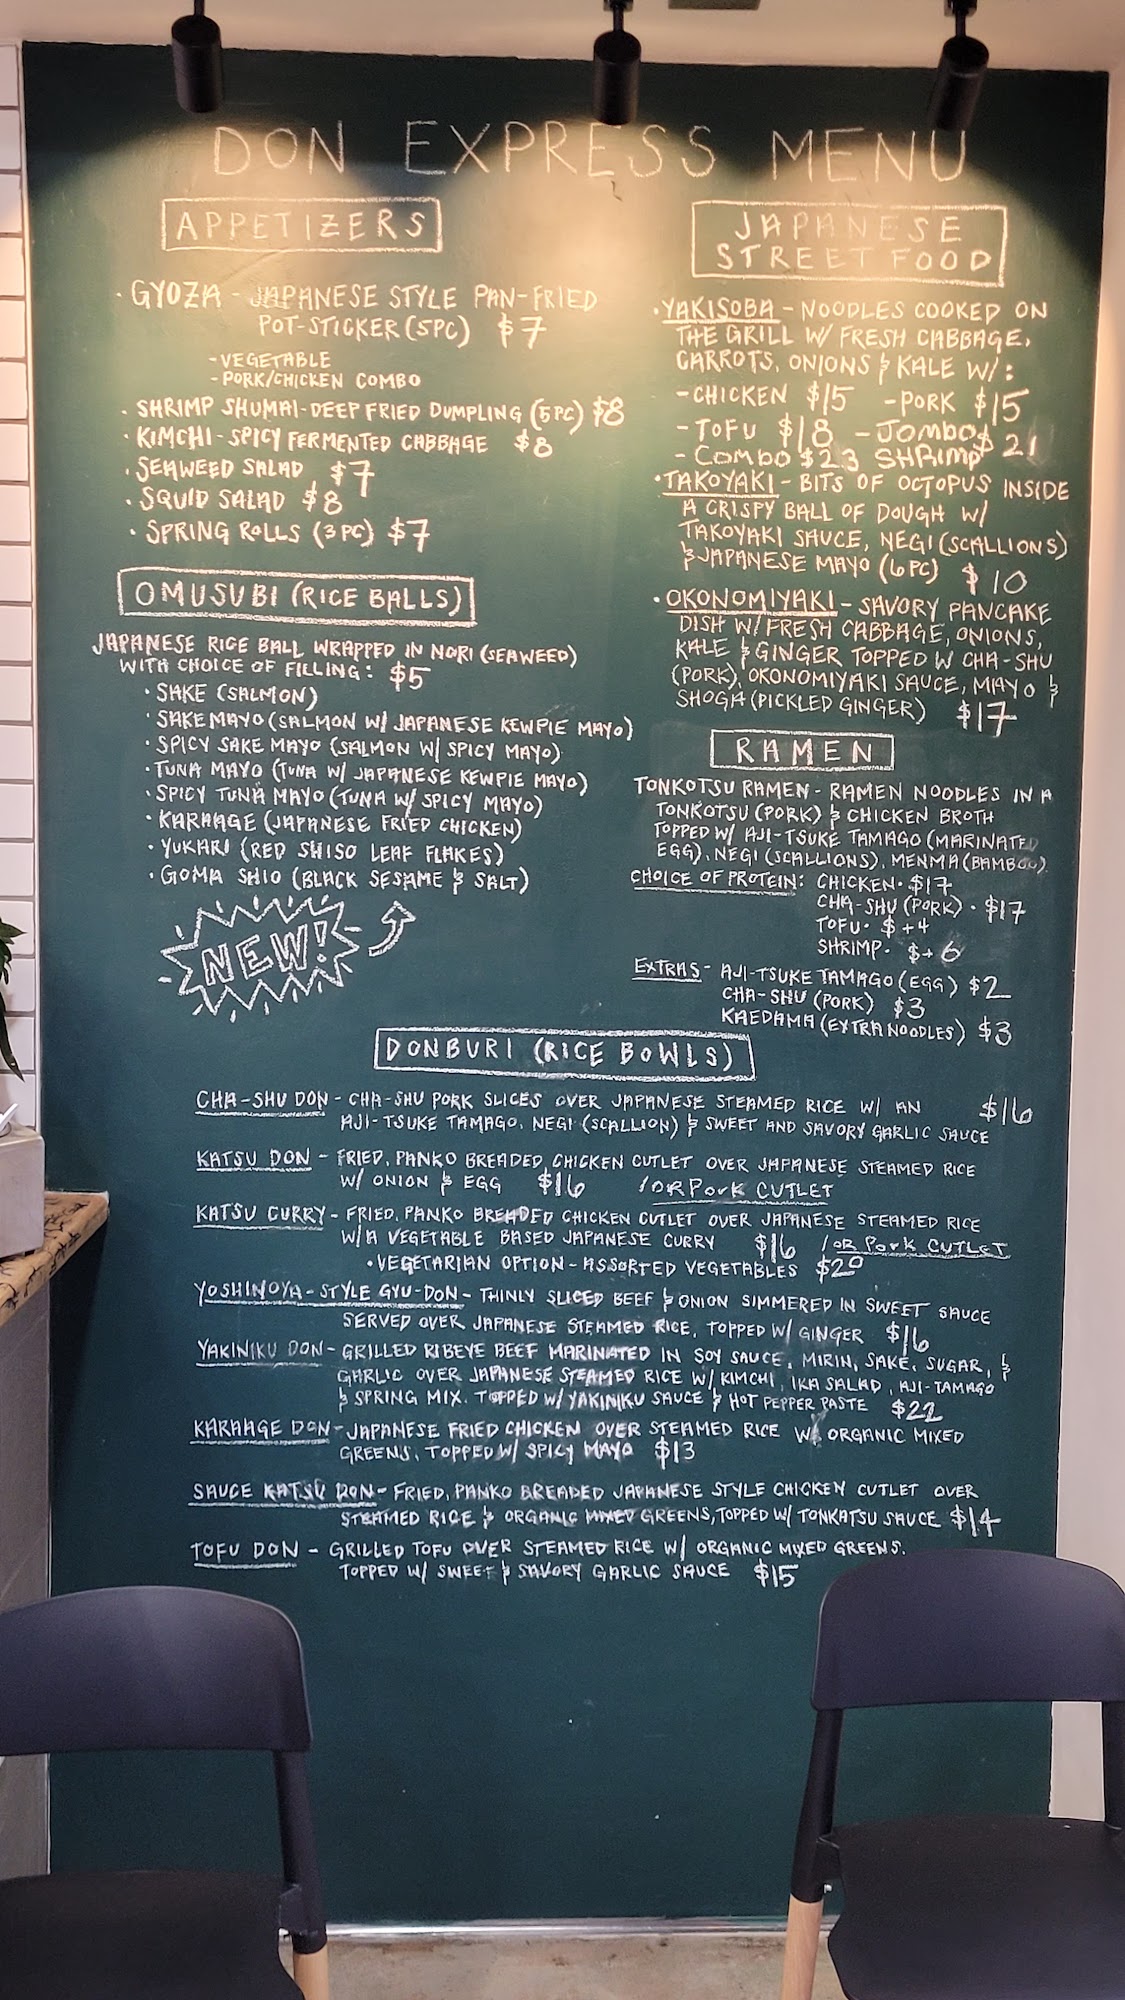 DON EXPRESS MENU
APPETIZERS
• GYOZA - JAPANESE STYLE PAN-FRIED
POT-STICKER (5PC) $7
- VEGETABLE
- PORK/CHICKEN COMBO
• SHRIMP SHUMAI - DEEP FRIED DUMPLING (5PC) $8
• KIMCHI - SPICY FERMENTED CABBAGE $8
• SEAWEED SALAD $7
• SQUID SALAD $8
• SPRING ROLLS (3PC) $7
OMUSUBI (RICE BALLS)
JAPANESE RICE BALL WRAPPED IN NORI (SEAWEED)
WITH CHOICE OF FILLING: $5
• SAKE (SALMON)
• SAKE MAYO (SALMON W/ JAPANESE KEWPIE MAYO)
• SPICY SAKE MAYO (SALMON W/ SPICY MAYO)
• TUNA MAYO (TUNA W/ JAPANESE KEWPIE MAYO)
• SPICY TUNA MAYO (TUNA W/ SPICY MAYO)
• KARAAGE (JAPANESE FRIED CHICKEN)
• YUKARI (RED SHISO LEAF FLAKES)
• GOMA SHIO (BLACK SESAME & SALT)
NEW!
JAPANESE
STREET FOOD
• YAKISOBA - NOODLES COOKED ON
THE GRILL W/ FRESH CABBAGE,
CARROTS, ONIONS & KALE W/:
- CHICKEN $15 - PORK $15
- TOFU $18 - JOMBO $21
- COMBO $23 SHRIMP
• TAKOYAKI - BITS OF OCTOPUS INSIDE
A CRISPY BALL OF DOUGH W/
TAKOYAKI SAUCE, NEGI (SCALLIONS)
& JAPANESE MAYO (6PC) $10
• OKONOMIYAKI - SAVORY PANCAKE
DISH W/ FRESH CABBAGE, ONIONS,
KALE & GINGER TOPPED W/ CHA-SHU
(PORK), OKONOMIYAKI SAUCE, MAYO &
SHOGA (PICKLED GINGER) $17
RAMEN
TONKOTSU RAMEN - RAMEN NOODLES IN A
TONKOTSU (PORK) & CHICKEN BROTH
TOPPED W/ AJI-TSUKE TAMAGO (MARINATED
EGG), NEGI (SCALLIONS), MENMA (BAMBOO)
CHOICE OF PROTEIN: CHICKEN • $17
CHA-SHU (PORK) • $17
TOFU • $+4
SHRIMP • $+6
EXTRAS - AJI-TSUKE TAMAGO (EGG) $2
CHA-SHU (PORK) $3
KAEDAMA (EXTRA NOODLES) $3
DONBURI (RICE BOWLS)
CHA-SHU DON - CHA-SHU PORK SLICES OVER JAPANESE STEAMED RICE W/ AN $16
AJI-TSUKE TAMAGO, NEGI (SCALLION) & SWEET AND SAVORY GARLIC SAUCE
KATSU DON - FRIED, PANKO BREADED, CHICKEN CUTLET OVER JAPANESE STEAMED RICE
W/ ONION & EGG $16 / OR PORK CUTLET
KATSU CURRY - FRIED, PANKO BREADED CHICKEN CUTLET OVER JAPANESE STEAMED RICE
W/ A VEGETABLE BASED JAPANESE CURRY $16 / OR PORK CUTLET
• VEGETARIAN OPTION - ASSORTED VEGETABLES $20
YOSHINOYA-STYLE GYU-DON - THINLY SLICED BEEF & ONION SIMMERED IN SWEET SAUCE
SERVED OVER JAPANESE STEAMED RICE, TOPPED W/ GINGER $16
YAKINIKU DON - GRILLED RIBEYE BEEF MARINATED IN SOY SAUCE, MIRIN, SAKE, SUGAR, &
GARLIC OVER JAPANESE STEAMED RICE W/ KIMCHI, IKA SALAD, AJI-TAMAGO
& SPRING MIX. TOPPED W/ YAKINIKU SAUCE & HOT PEPPER PASTE $22
KARAAGE DON - JAPANESE FRIED CHICKEN OVER STEAMED RICE W/ ORGANIC MIXED
GREENS, TOPPED W/ SPICY MAYO $13
SAUCE KATSU DON - FRIED, PANKO BREADED JAPANESE STYLE CHICKEN CUTLET OVER
STEAMED RICE & ORGANIC MIXED GREENS, TOPPED W/ TONKATSU SAUCE $14
TOFU DON - GRILLED TOFU OVER STEAMED RICE W/ ORGANIC MIXED GREENS.
TOPPED W/ SWEET & SAVORY GARLIC SAUCE $15